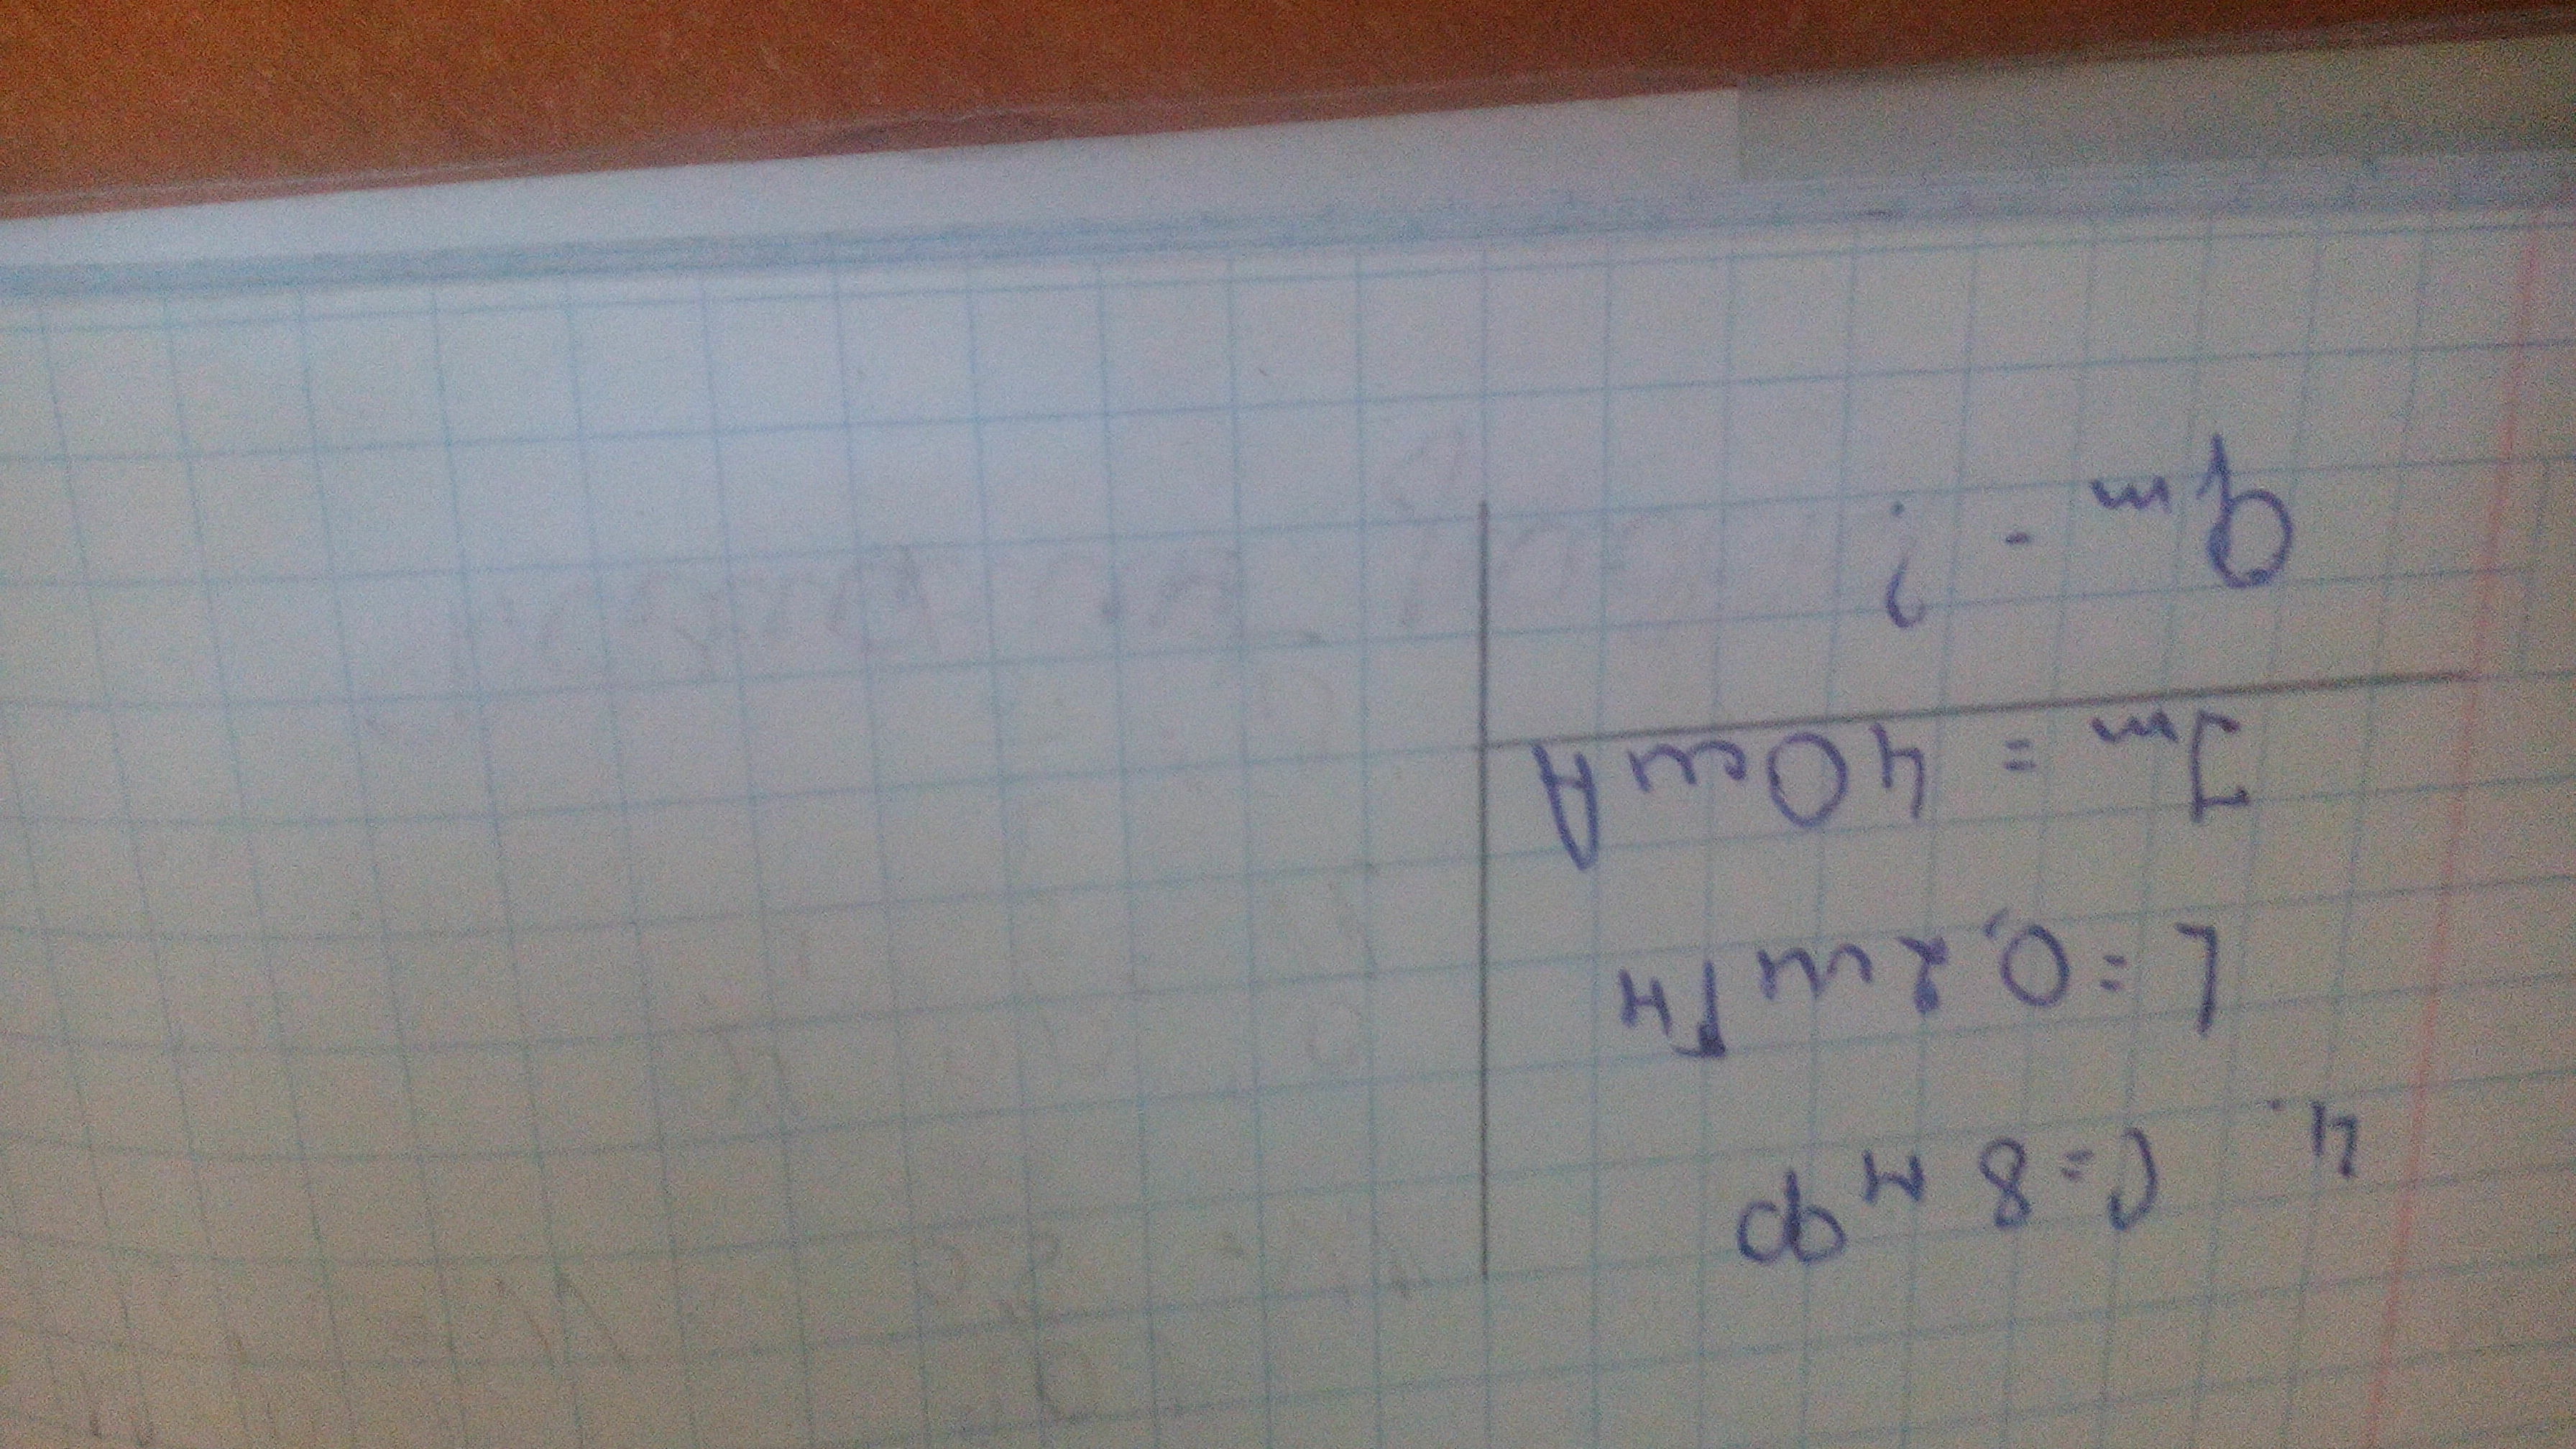 4. C = 8 пФ
L = 0,2 мГн
Im = 40 мА
qm - ?